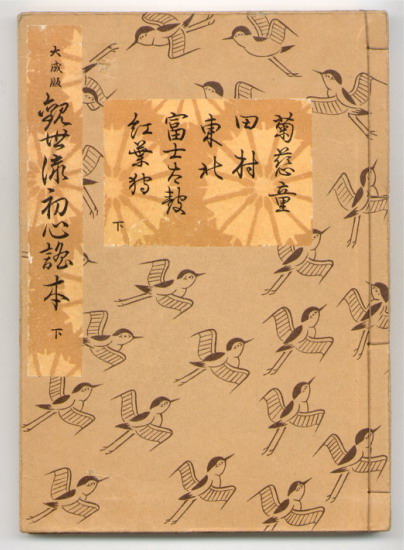 菊慈童
田村
東北
富士太鼓
紅葉狩
下
大成版
観世流初心謡本
下